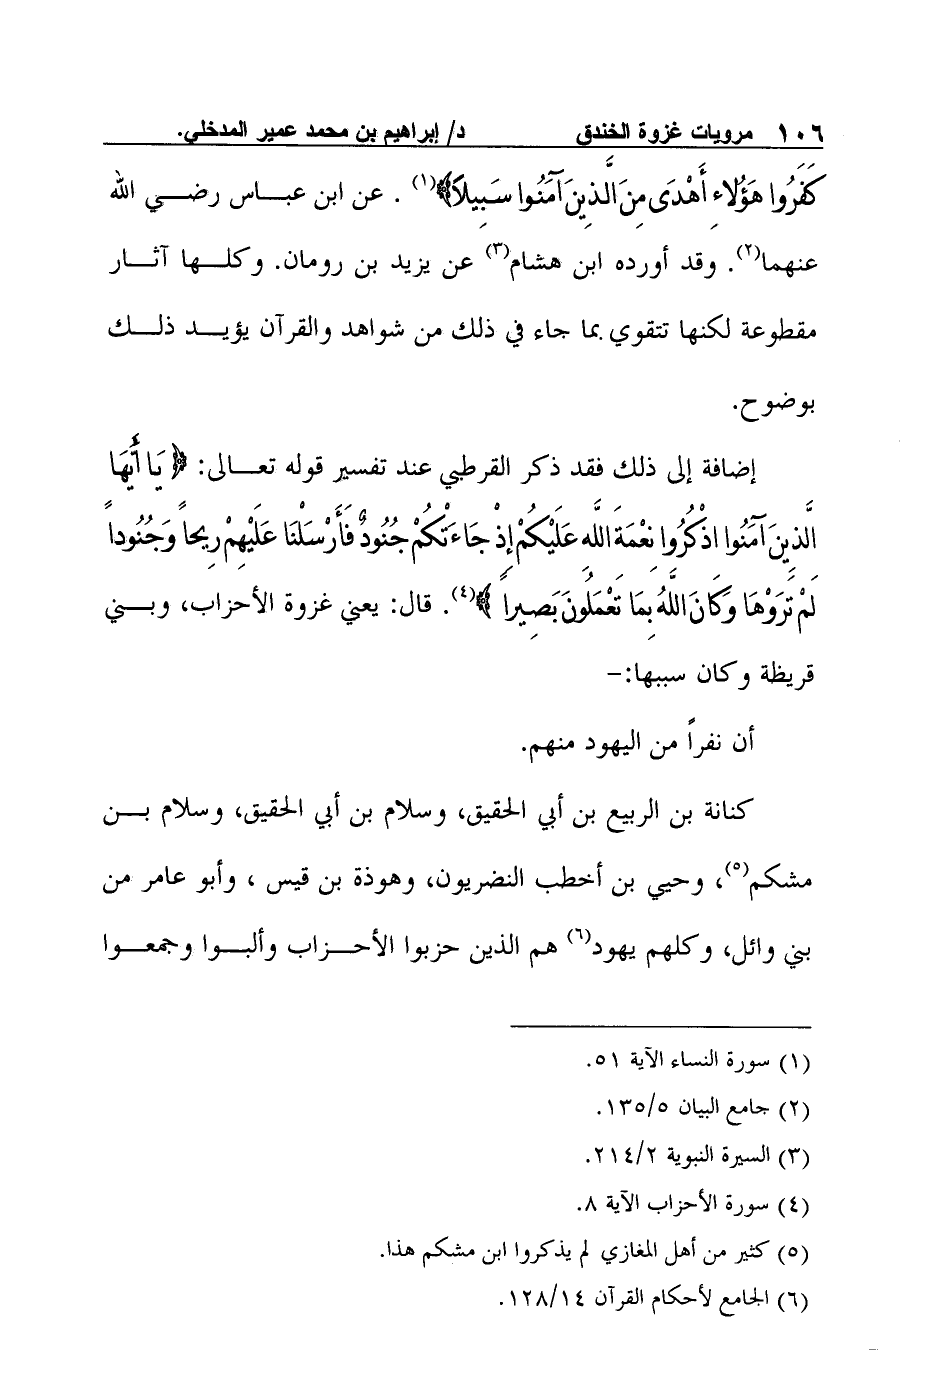 ١٠٦ مرويات غزوة الخندق د/ إبراهيم بن محمد عمير المدخلي.
كَفَرُوا هَؤُلاءِ أَهْدَى مِنَ الَّذِينَ آمَنُوا سَبِيلاً﴾(١) . عن ابن عبـاس رضـي الله
عنهما(٢). وقد أورده ابن هشام(٣) عن يزيد بن رومان. وكلـها آثـار
مقطوعة لكنها تتقوي بما جاء في ذلك من شواهد والقرآن يؤيـد ذلـك
بوضوح.
إضافة إلى ذلك فقد ذكر القرطبي عند تفسير قوله تعـالى: ﴿ يَا أَيُّهَا
الَّذِينَ آمَنُوا اذْكُرُوا نِعْمَةَ اللَّهِ عَلَيْكُمْ إِذْ جَاءَتْكُمْ جُنُودٌ فَأَرْسَلْنَا عَلَيْهِمْ رِيحاً وَجُنُوداً
لَمْ تَرَوْهَا وَكَانَ اللَّهُ بِمَا تَعْمَلُونَ بَصِيراً ﴾(٤). قال: يعني غزوة الأحزاب، وبـني
قريظة وكان سببها:–
أن نفراً من اليهود منهم.
كنانة بن الربيع بن أبي الحقيق، وسلام بن أبي الحقيق، وسلام بـن
مشكم(٥)، وحيي بن أخطب النضريون، وهوذة بن قيس ، وأبو عامر من
بني وائل، وكلهم يهود(٦) هم الذين حزبوا الأحـزاب وألبـوا وجمعـوا
(١) سورة النساء الآية ٥١.
(٢) جامع البيان ١٣٥/٥.
(٣) السيرة النبوية ٢١٤/٢.
(٤) سورة الأحزاب الآية ٨.
(٥) كثير من أهل المغازي لم يذكروا ابن مشكم هذا.
(٦) الجامع لأحكام القرآن ١٢٨/١٤.